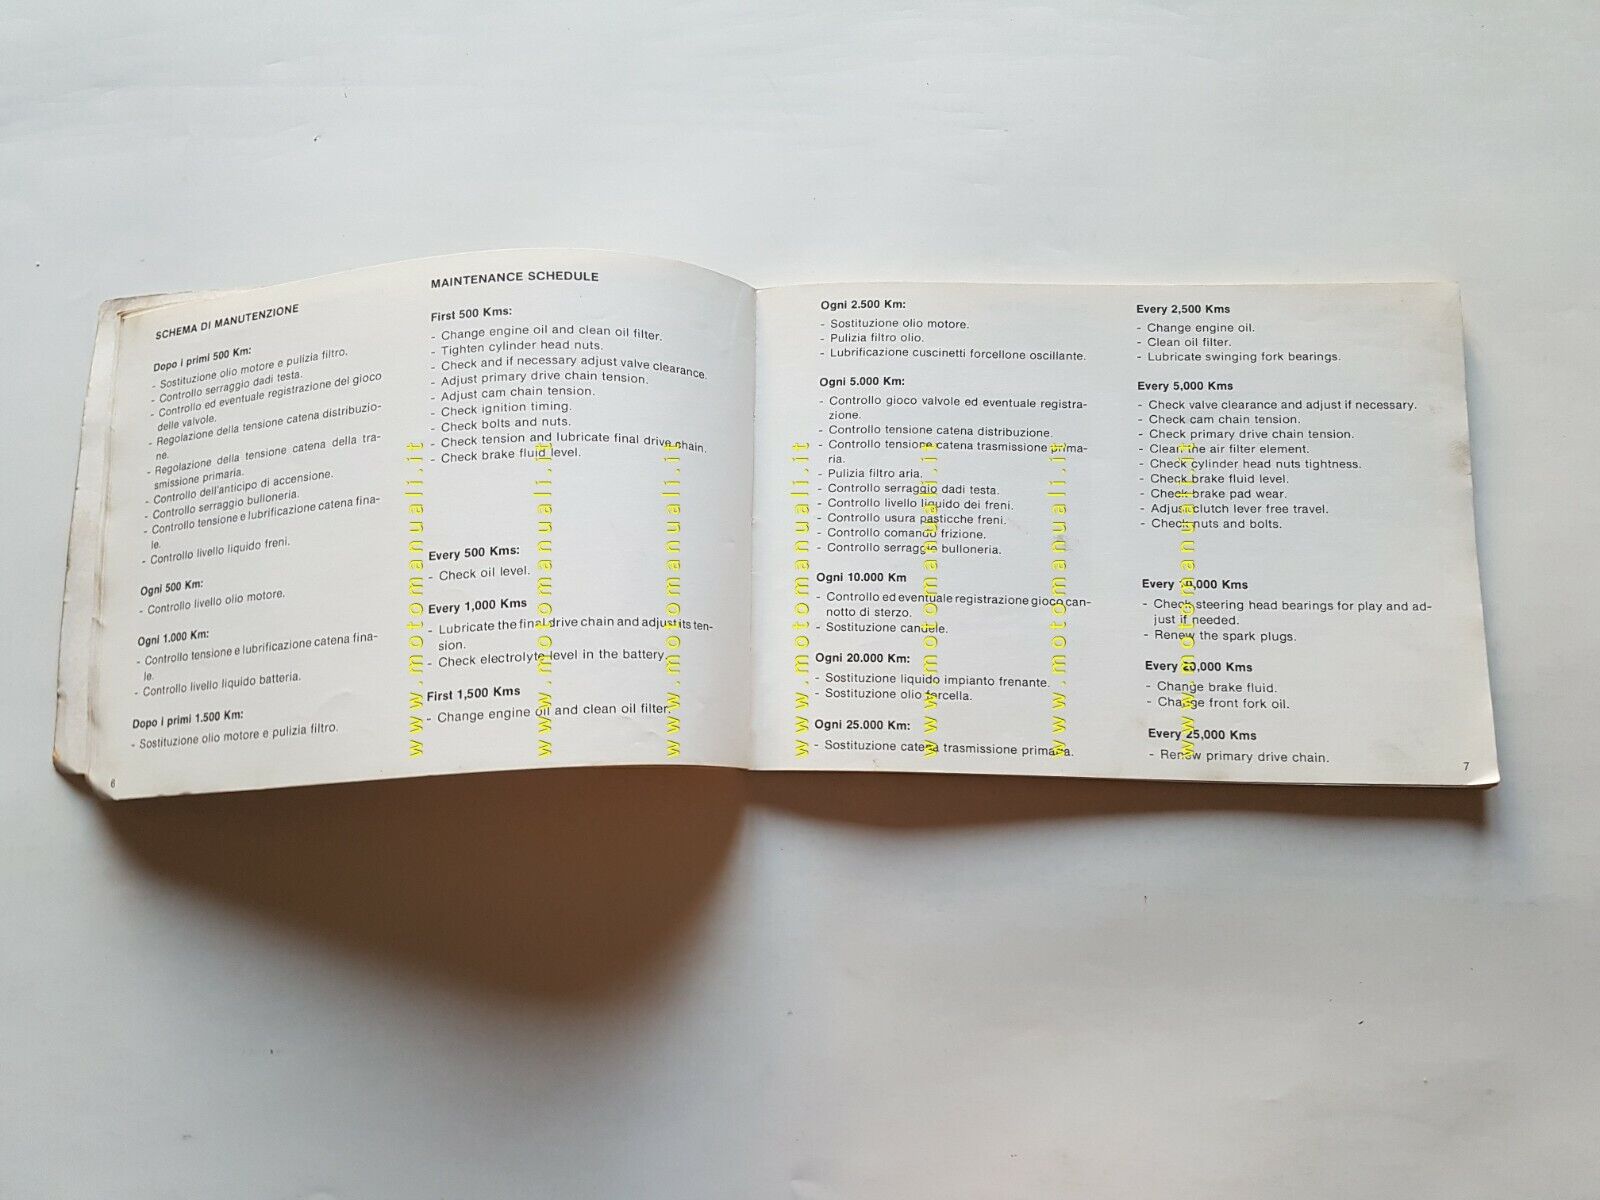 SCHEMA DI MANUTENZIONE
Dopo i primi 500 Km:
- Sostituzione olio motore e pulizia filtro.
- Controllo serraggio dadi testa.
- Controllo ed eventuale registrazione del gioco
delle valvole.
- Regolazione della tensione catena distribuzio-
ne.
- Regolazione della tensione catena della tra-
smissione primaria.
- Controllo dell'anticipo di accensione.
- Controllo serraggio bulloneria.
- Controllo tensione e lubrificazione catena fina-
le.
- Controllo livello liquido freni.
Ogni 500 Km:
- Controllo livello olio motore.
Ogni 1.000 Km:
- Controllo tensione e lubrificazione catena fina-
le.
- Controllo livello liquido batteria.
Dopo i primi 1.500 Km:
- Sostituzione olio motore e pulizia filtro.
6
MAINTENANCE SCHEDULE
First 500 Kms:
- Change engine oil and clean oil filter.
- Tighten cylinder head nuts.
- Check and if necessary adjust valve clearance.
- Adjust primary drive chain tension.
- Adjust cam chain tension.
- Check ignition timing.
- Check bolts and nuts.
- Check tension and lubricate final drive chain.
- Check brake fluid level.
Every 500 Kms:
- Check oil level.
Every 1,000 Kms
- Lubricate the final drive chain and adjust its ten-
sion.
- Check electrolyte level in the battery.
First 1,500 Kms
- Change engine oil and clean oil filter.
Ogni 2.500 Km:
- Sostituzione olio motore.
- Pulizia filtro olio.
- Lubrificazione cuscinetti forcellone oscillante.
Ogni 5.000 Km:
- Controllo gioco valvole ed eventuale registra-
zione.
- Controllo tensione catena distribuzione.
- Controllo tensione catena trasmissione prima-
ria.
- Pulizia filtro aria.
- Controllo serraggio dadi testa.
- Controllo livello liquido dei freni.
- Controllo usura pasticche freni.
- Controllo comando frizione.
- Controllo serraggio bulloneria.
Ogni 10.000 Km
- Controllo ed eventuale registrazione gioco can-
notto di sterzo.
- Sostituzione candele.
Ogni 20.000 Km:
- Sostituzione liquido impianto frenante.
- Sostituzione olio forcella.
Ogni 25.000 Km:
- Sostituzione catena trasmissione primaria.
Every 2,500 Kms
- Change engine oil.
- Clean oil filter.
- Lubricate swinging fork bearings.
Every 5,000 Kms
- Check valve clearance and adjust if necessary.
- Check cam chain tension.
- Check primary drive chain tension.
- Clean the air filter element.
- Check cylinder head nuts tightness.
- Check brake fluid level.
- Check brake pad wear.
- Adjust clutch lever free travel.
- Check nuts and bolts.
Every 10,000 Kms
- Check steering head bearings for play and ad-
just if needed.
- Renew the spark plugs.
Every 20,000 Kms
- Change brake fluid.
- Change front fork oil.
Every 25,000 Kms
- Renew primary drive chain.
7
www.motomanuali.it
www.motomanuali.it
www.motomanuali.it
www.motomanuali.it
www.motomanuali.it
www.motomanuali.it
www.motomanuali.it